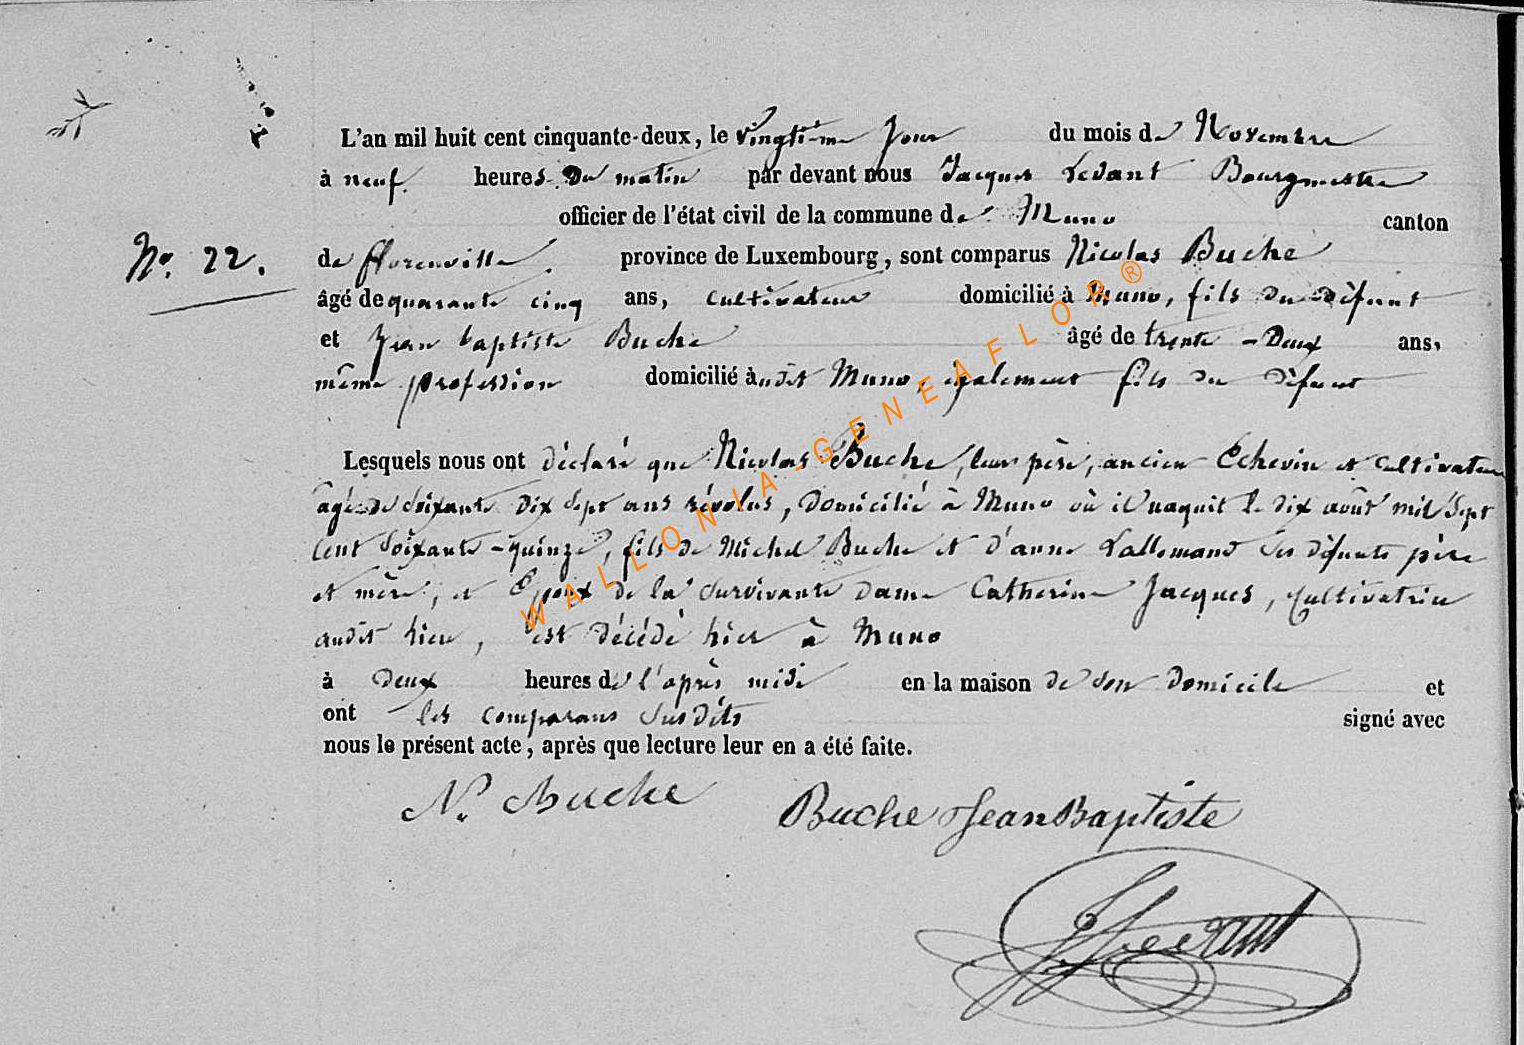 L'an mil huit cent cinquante-deux, le vingtième jour du mois de Novembre
à neuf heures du matin par devant nous Jacques Ledant Bourgmestre
officier de l'état civil de la commune de Muno canton
No. 22.
de florenville province de Luxembourg, sont comparus Nicolas Buche
âgé de quarante cinq ans, cultivateur domicilié à Muno, fils du défunt
et Jean baptiste Buche âgé de trente-Deux ans,
même profession domicilié à udit Muno, également fils du défunt
Lesquels nous ont déclaré que Nicolas Buche, leur père, ancien Echevin et cultivateur
âgé de soixante dix sept ans révolus, domicilié à Muno où il naquit le dix août mil sept
cent soixante-quinze, fils de Michel Buche et d'anne Lallemand ses défunts père
et mère, et Epoux de la survivante dame Catherine Jacques, cultivatrice
audit lieu, est décédé hier à Muno
à deux heures de l'après midi en la maison de son domicile et
ont les comparans susdits signé avec
nous le présent acte, après que lecture leur en a été faite.
N. Buche Buche Jean Baptiste
J Ledant
WALLONIA-GENEAFLOR®